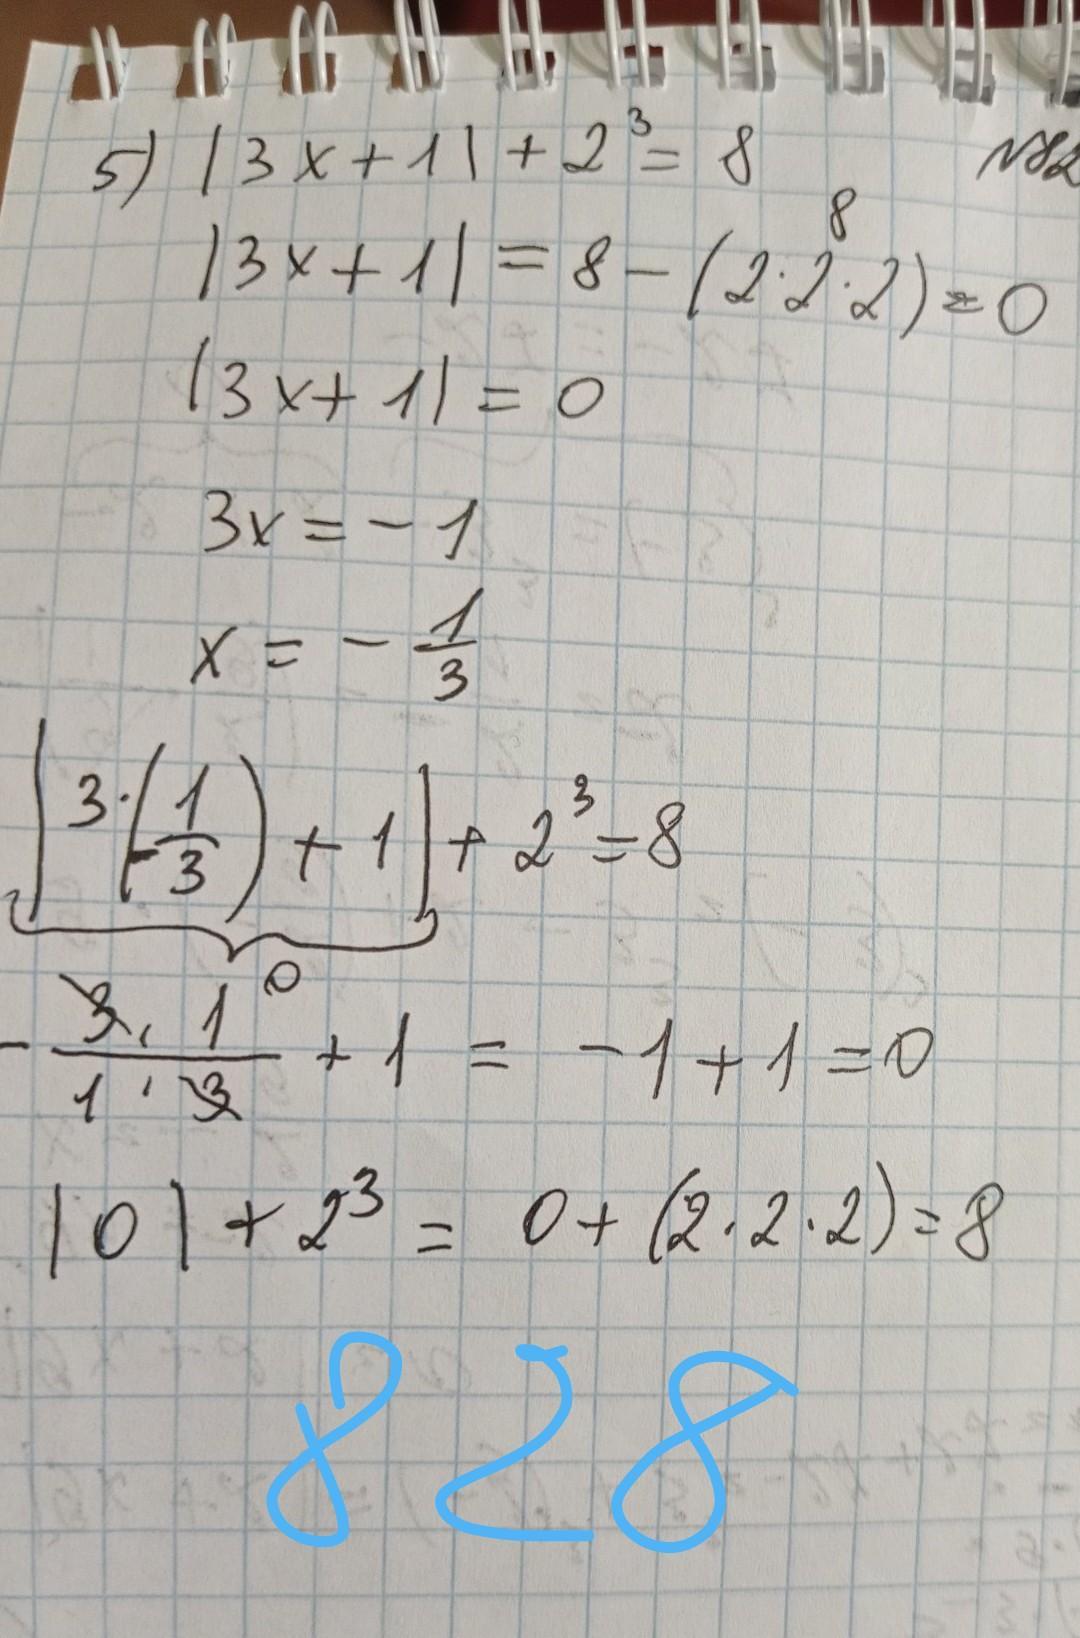 5) |3x+1| + 2³ = 8 №82
|3x+1| = 8 - (2·2·2) = 0
8
|3x+1| = 0
3x = -1
x = - 1/3
|3·(-1/3) + 1| + 2³ = 8
0
- 3·1/1·3 + 1 = -1 + 1 = 0
|0| + 2³ = 0 + (2·2·2) = 8
828